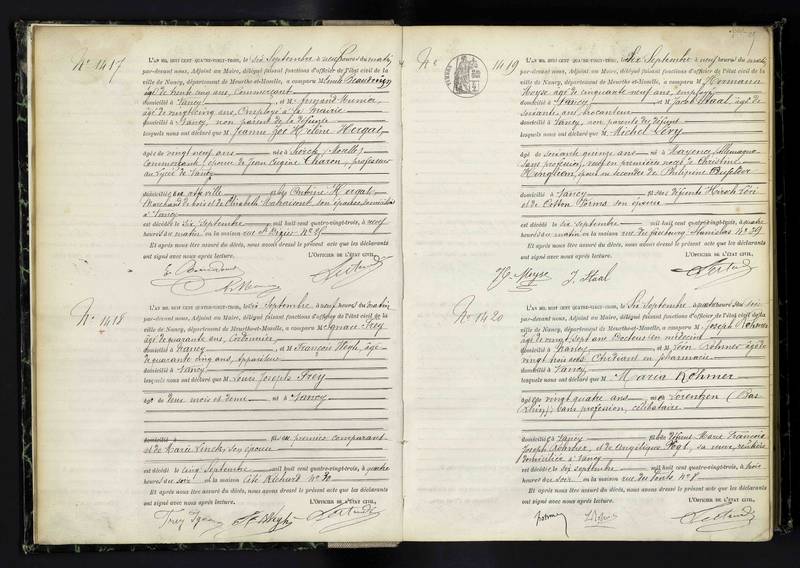 No 1417
L'AN MIL HUIT CENT QUATRE-VINGT-TROIS, le six Septembre à neuf heures du matin
par-devant nous, Adjoint au Maire, délégué faisant fonctions d'officier de l'état civil de la
ville de Nancy, département de Meurthe-et-Moselle, a comparu M
âgé de trente cinq ans, Commerçant
domicilié à Nancy et M
âgé de vingt cinq ans, Employé à la Mairie
domicilié à Nancy, non parent de la défunte
lesquels nous ont déclaré que Jeanne Zoé Hélène Hergat
âgée de vingt neuf ans née à Sierck (Moselle)
épouse de Jean Eugène Charon, professeur
au Lycée de Nancy
domiciliée en cette ville Antoine Hergat
Marchand de bois et de Elisabeth son épouse domiciliés
à Nancy
est décédée le six Septembre mil huit cent quatre-vingt-trois, à neuf
heures du matin en la maison rue St Dizier No
Et après nous être assuré du décès, nous avons dressé le présent acte que les déclarants
ont signé avec nous après lecture. L'OFFICIER DE L'ÉTAT CIVIL,
No 1418
L'AN MIL HUIT CENT QUATRE-VINGT-TROIS, le six Septembre, à neuf heures du matin
par-devant nous, Adjoint au Maire, délégué faisant fonctions d'officier de l'état civil de la
ville de Nancy, département de Meurthe-et-Moselle, a comparu M Ignace Frey
âgé de quarante ans, Cordonnier
domicilié à Nancy et M François Wegh, âgé
de quarante cinq ans, appariteur
domicilié à Nancy
lesquels nous ont déclaré que Louis Joseph Frey
âgé de deux mois et demi né à Nancy
domicilié à fils du premier comparant
et de Marie Linck, son épouse
est décédé le cinq Septembre mil huit cent quatre-vingt-trois, à quatre
heures du soir en la maison Cité Richard No 30
Et après nous être assuré du décès, nous avons dressé le présent acte que les déclarants
ont signé avec nous après lecture. L'OFFICIER DE L'ÉTAT CIVIL,
Frey Ignace
No 1419
L'AN MIL HUIT CENT QUATRE-VINGT-TROIS, le Six Septembre à neuf heures du matin
par-devant nous, Adjoint au Maire, délégué faisant fonctions d'officier de l'état civil de la
ville de Nancy, département de Meurthe-et-Moselle, a comparu M Hermann
Meyse âgé de cinquante neuf ans, employé
domicilié à Nancy et M Jacob Staal, âgé de
soixante ans, brocanteur
domicilié à Nancy, non parents du défunt
lesquels nous ont déclaré que Michel Lévy
âgé de soixante quinze ans né à Mayence, Allemagne
sans profession, veuf en première noces de Christine
époux en secondes de Philippine
domicilié à Nancy fils des défunts Hirsch Lévi
et de son épouse
est décédé le six septembre mil huit cent quatre-vingt-trois, à quatre
heures du matin en la maison rue du faubourg Stanislas No 29
Et après nous être assuré du décès, nous avons dressé le présent acte que les déclarants
ont signé avec nous après lecture. L'OFFICIER DE L'ÉTAT CIVIL,
H. Meyse J. Staal
No 1420
L'AN MIL HUIT CENT QUATRE-VINGT-TROIS, le Six Septembre à quatre heures du soir
par-devant nous, Adjoint au Maire, délégué faisant fonctions d'officier de l'état civil de la
ville de Nancy, département de Meurthe-et-Moselle, a comparu M Joseph Röhmer
âgé de vingt sept ans Docteur en médecine
domicilié à Nancy et M Léon Röhmer âgé de
vingt trois ans Étudiant en pharmacie
domicilié à Nancy
lesquels nous ont déclaré que Maria Röhmer
âgée de vingt quatre ans née à Lorentzen (Bas
Rhin), sans profession, célibataire
domiciliée à Nancy fille de défunt Marie François
Joseph Röhmer, et de Angélique Vogt, sa veuve, rentière
domiciliée à Nancy
est décédée le six septembre mil huit cent quatre-vingt-trois, à trois
heures du soir en la maison rue des Ponts No 8
Et après nous être assuré du décès, nous avons dressé le présent acte que les déclarants
ont signé avec nous après lecture. L'OFFICIER DE L'ÉTAT CIVIL,